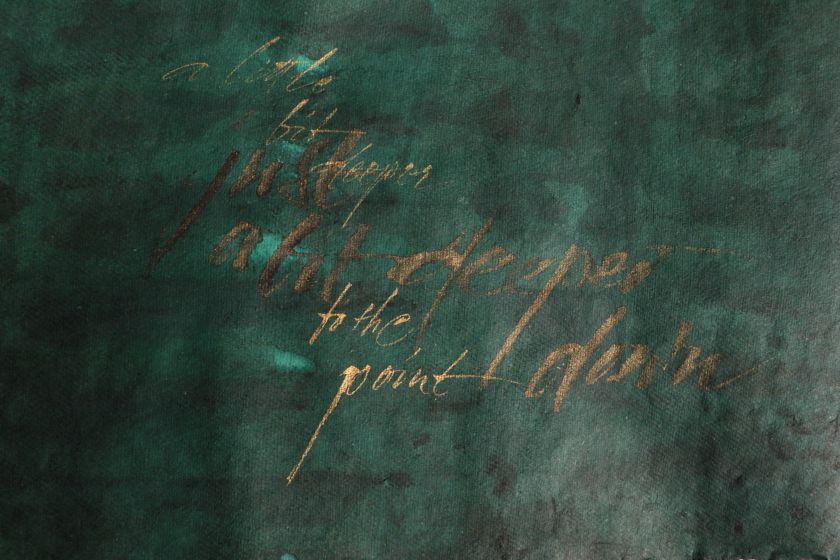 a little
bit
deeper
just
a bit deeper
to the
point
down